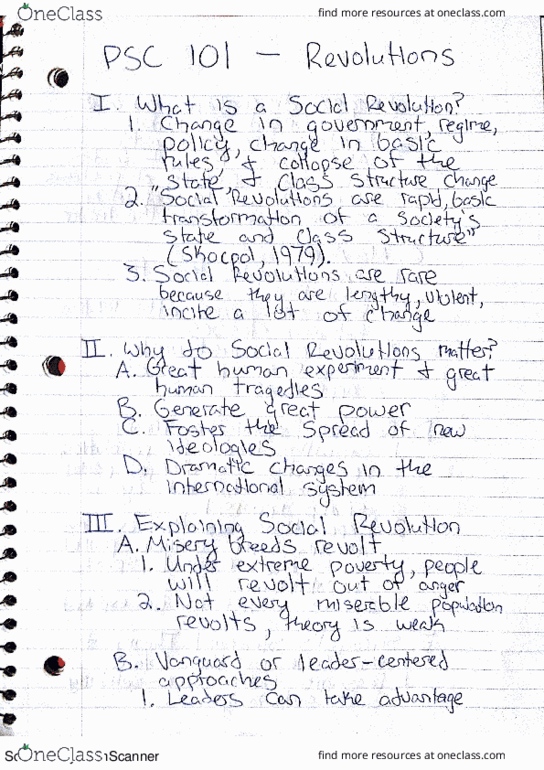 OneClass
find more resources at oneclass.com
PSC 101 — Revolutions
I. What is a Social Revolution?
1. Change in government, regime,
policy, change in basic
rules, & collapse of the
state, & class structure change
2. "Social Revolutions are rapid, basic
transformation of a society's
state and class structure"
(Skocpol, 1979).
3. Social Revolutions are rare
because they are lengthy, violent,
incite a lot of change
II. Why do Social Revolutions matter?
A. Great human experiment & great
human tragedies
B. Generate great power
C. Foster the spread of new
ideologies
D. Dramatic changes in the
international system
III. Explaining Social Revolution
A. Misery breeds revolt
1. Under extreme poverty, people
will revolt out of anger
2. Not every miserble population
revolts, theory is weak
B. Vanguard or leader-centered
approaches
1. Leaders can take advantage
OneClass
Scanner
find more resources at oneclass.com